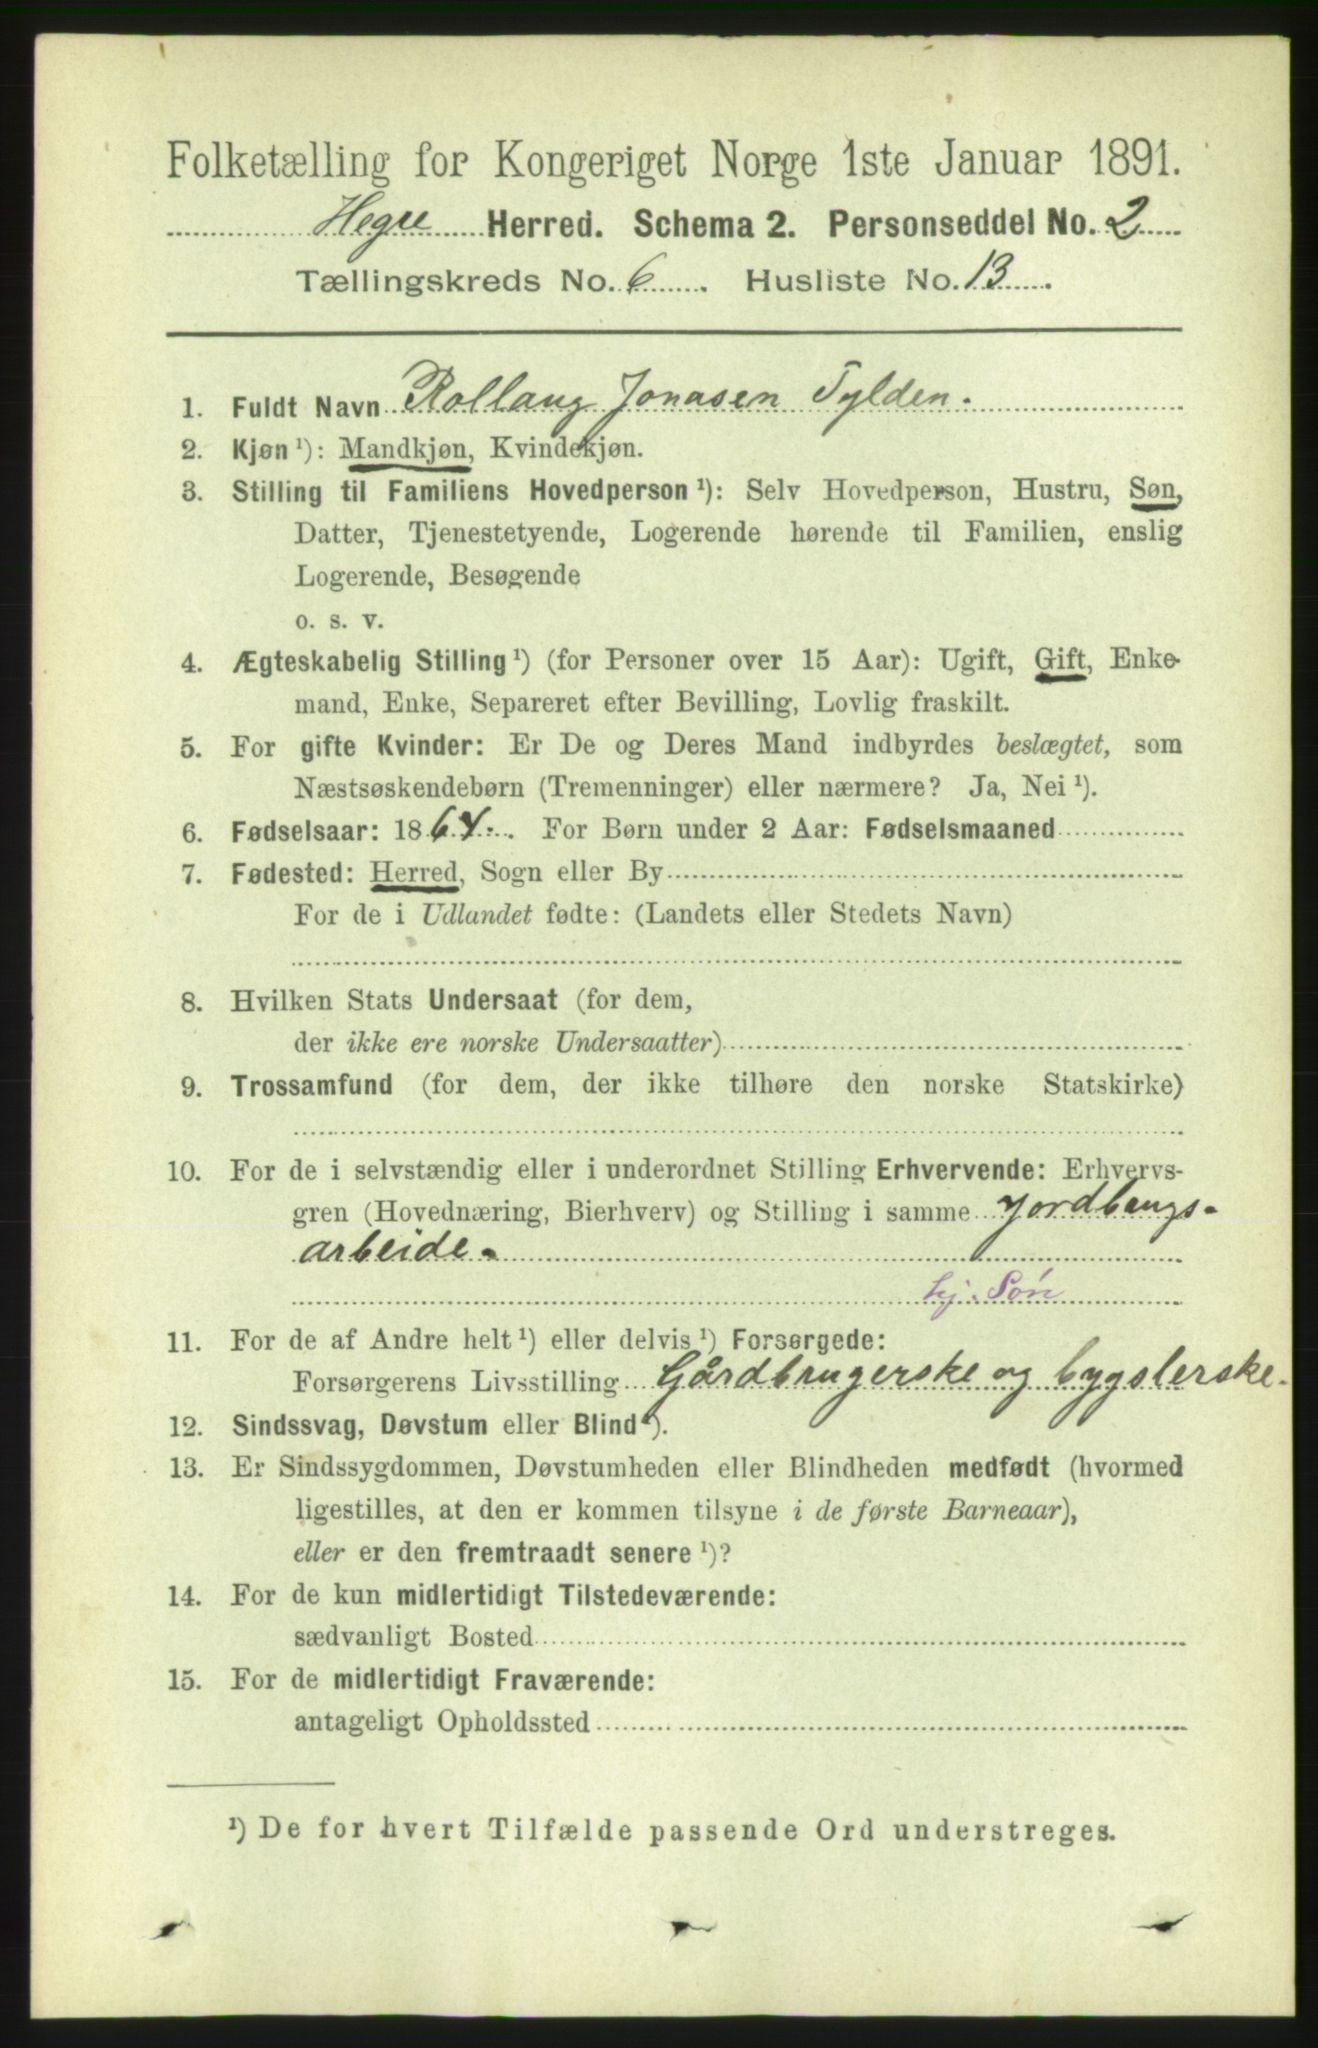 Folketælling for Kongeriget Norge 1ste Januar 1891.
Hegre Herred. Schema 2. Personseddel No. 2
Tællingskreds No. 6. Husliste No. 13.
1. Fuldt Navn Rollaug Jonasen Tylden.
2. Kjøn ¹): Mandkjøn, Kvindekjøn.
3. Stilling til Familiens Hovedperson ¹): Selv Hovedperson, Hustru, Søn,
Datter, Tjenestetyende, Logerende hørende til Familien, enslig
Logerende, Besøgende
o. s. v.
4. Ægteskabelig Stilling ¹) (for Personer over 15 Aar): Ugift, Gift, Enke-
mand, Enke, Separeret efter Bevilling, Lovlig fraskilt.
5. For gifte Kvinder: Er De og Deres Mand indbyrdes beslægtet, som
Næstsøskendebørn (Tremenninger) eller nærmere? Ja, Nei ¹).
6. Fødselsaar: 1864. For Børn under 2 Aar: Fødselsmaaned
7. Fødested: Herred, Sogn eller By
For de i Udlandet fødte: (Landets eller Stedets Navn)
8. Hvilken Stats Undersaat (for dem,
der ikke ere norske Undersaatter)
9. Trossamfund (for dem, der ikke tilhøre den norske Statskirke)
10. For de i selvstændig eller i underordnet Stilling Erhvervende: Erhvervs-
gren (Hovednæring, Bierhverv) og Stilling i samme Jordbrugs-
arbeide.
hj. Søn
11. For de af Andre helt ¹) eller delvis ¹) Forsørgede:
Forsørgerens Livsstilling Gårdbrugerske og bygslerske.
12. Sindssvag, Døvstum eller Blind ¹).
13. Er Sindssygdommen, Døvstumheden eller Blindheden medfødt (hvormed
ligestilles, at den er kommen tilsyne i de første Barneaar),
eller er den fremtraadt senere ¹)?
14. For de kun midlertidigt Tilstedeværende:
sædvanligt Bosted
15. For de midlertidigt Fraværende:
antageligt Opholdssted
¹) De for hvert Tilfælde passende Ord understreges.